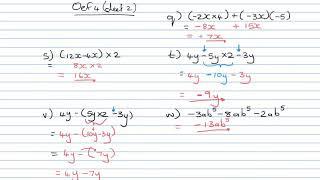 (sheet 2)
q) (-2x×4)+(-3x)(-5)
= -8x + 15x
= +7x
s) (12x-4x)×2
= 8x × 2
= 16x
t) 4y-5y×2-3y
= 4y-10y-3y
= -9y
v) 4y-(5y×2-3y)
= 4y-(10y-3y)
= 4y-(7y)
= 4y-7y
w) -3ab⁵-8ab⁵-2ab⁵
= -13ab⁵